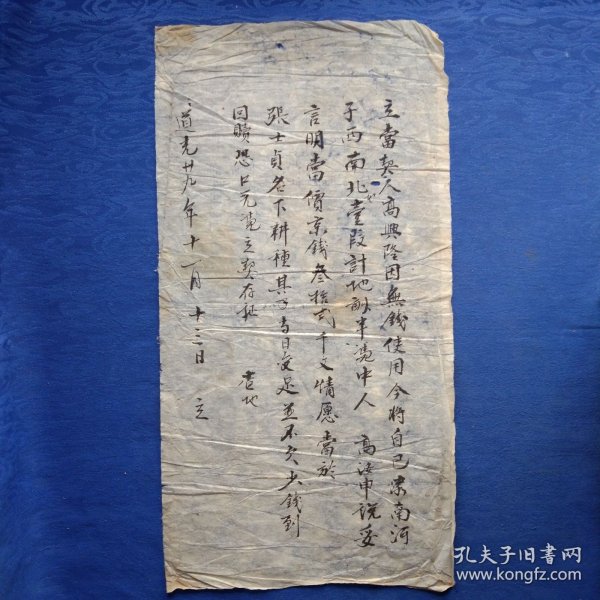 立當契人高興隆因無錢使用今將自己業南河
子西南北壹段計地畝半憑中人 高 申說妥
言明當價京錢叁拾弍千文情愿當於
張士貞名下耕種其 當日交足並不欠少錢到
回贖恐口无憑立契存証 當地
道光廿九年十一月十三日 立
孔夫子旧书网
www.kongfz.com